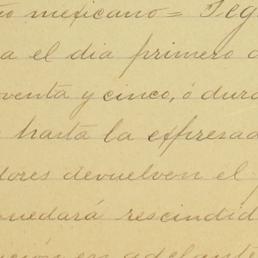 ño mexicano = Seg
a el dia primero d
oventa y cinco, ó dura
hasta la espresad
dores devuelven el p
quedará rescindid
ción en adelante